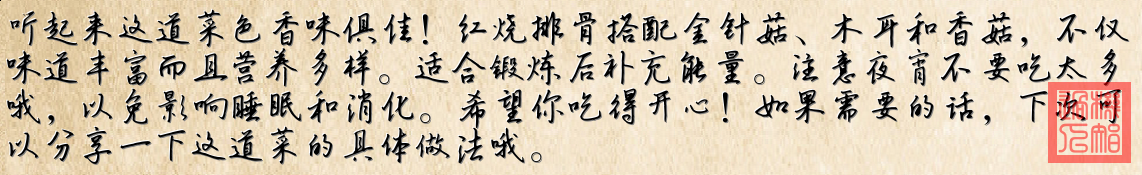 听起来这道菜色香味俱佳！红烧排骨搭配金针菇、木耳和香菇，不仅
味道丰富而且营养多样。适合锻炼后补充能量。注意夜宵不要吃太多
哦，以免影响睡眠和消化。希望你吃得开心！如果需要的话，下次可
以分享一下这道菜的具体做法哦。